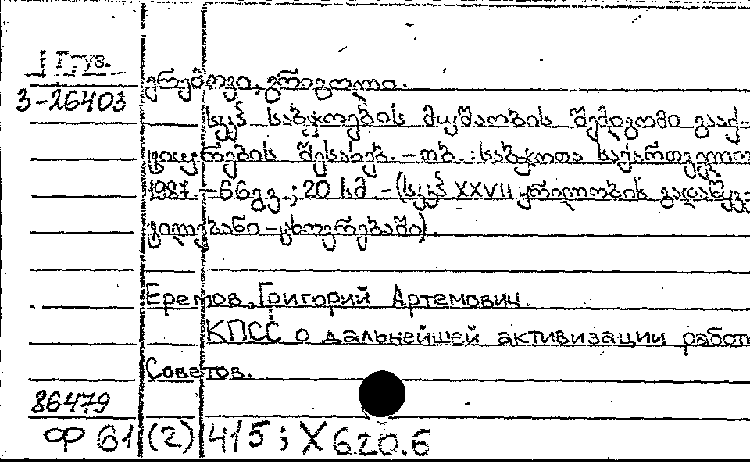 Груз.
3-26403
ერემოვი, გრიგოლი.
სკკპ საბჭოების მუშაობის შემდგომი გააქ-
ტიურების შესახებ. - თბ. : საბჭოთა საქართველო
1987. - 66გვ.; 20 სმ. - (სკკპ XXVII ყრილობის გადაწყვე
ტილებანი - ცხოვრებაში).
Еремов, Григорий Артемович.
КПСС о дальнейшей активизации работ
Советов.
86479
Ф 61(2) 415; X620.6